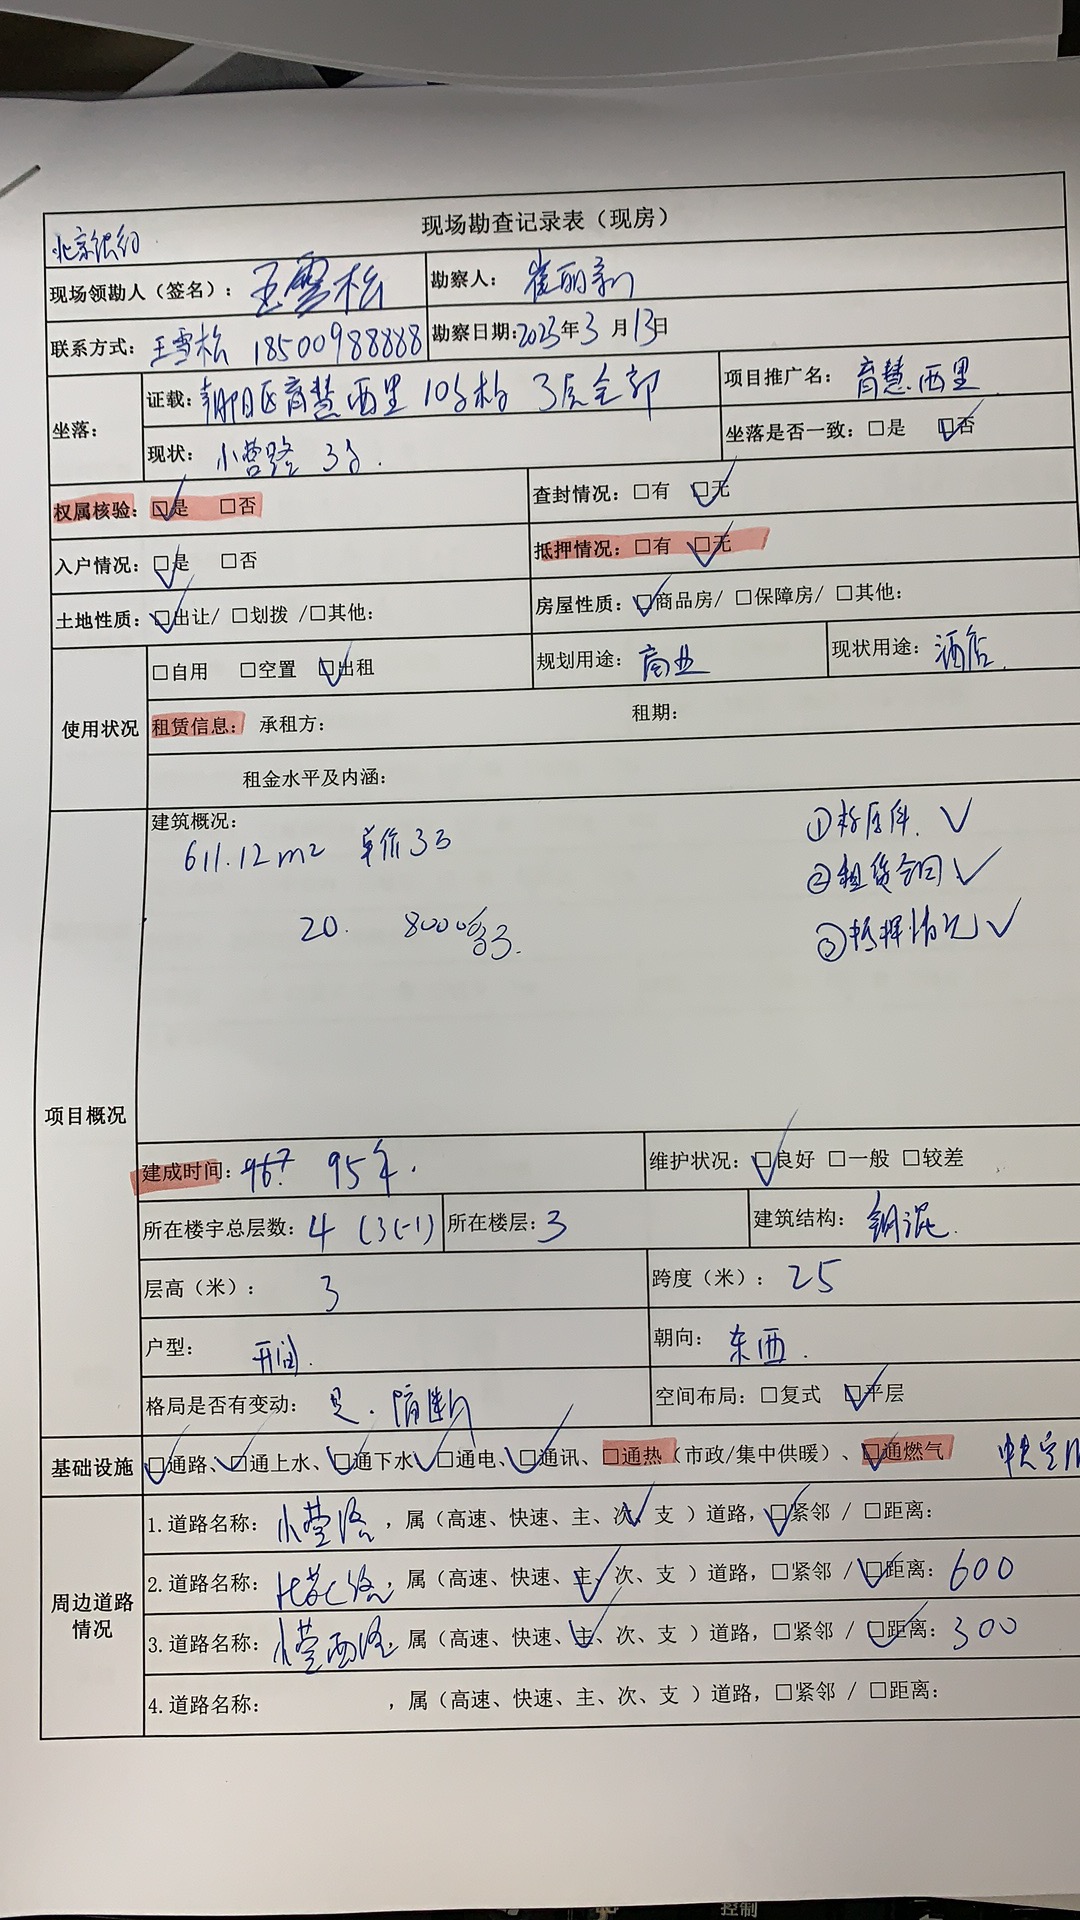 现场勘查记录表（现房）
北京银行
现场领勘人（签名）： 王雪松 勘察人： 崔丽新
联系方式： 王雪松 18500988888 勘察日期: 2023年3月13日
坐落： 证载： 朝阳区育慧西里10号楼 3层全部 项目推广名： 育慧西里
现状： 小营路 3号. 坐落是否一致：□是 ☑否
权属核验：☑是 □否 查封情况：□有 ☑无
入户情况：☑是 □否 抵押情况：□有 ☑无
土地性质：☑出让/ □划拨 /□其他： 房屋性质：☑商品房/ □保障房/ □其他：
使用状况 □自用 □空置 ☑出租 规划用途： 商业 现状用途： 酒店.
租赁信息： 承租方： 租期：
租金水平及内涵：
项目概况 建筑概况：
611.12m2 单价3万 ① ✓
② 租赁合同 ✓
20. 8000 ③ 抵押情况 ✓
建成时间： 96? 95年. 维护状况：☑良好 □一般 □较差
所在楼宇总层数： 4 (3(-1) 所在楼层: 3 建筑结构： 钢混.
层高（米）： 3 跨度（米）： 25
户型： 开间. 朝向： 东西.
格局是否有变动： 是. 隔断 空间布局：□复式 ☑平层
基础设施 ☑通路、☑通上水、☑通下水、☑通电、☑通讯、□通热（市政/集中供暖）、☑通燃气 中央空
周边道路情况 1.道路名称： 小营路，属（高速、快速、主、次✓、支 ）道路，☑紧邻 / □距离：
2.道路名称： ，属（高速、快速、主✓、次、支 ）道路，□紧邻 / ☑距离： 600
3.道路名称： 小营西路，属（高速、快速、主✓、次、支 ）道路，□紧邻 / ☑距离： 300
4.道路名称： ，属（高速、快速、主、次、支 ）道路，□紧邻 / □距离：
控制